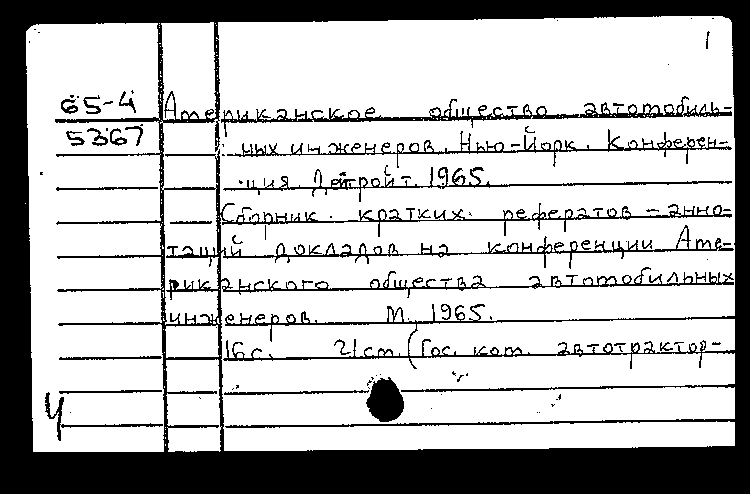 1
65-4 Американское общество автомобиль-
5367 ных инженеров. Нью-Йорк. Конферен-
ция. Детройт. 1965.
Сборник кратких рефератов - анно-
таций докладов на конференции Аме-
риканского общества автомобильных
инженеров. М., 1965.
16 с. 21 см. (Гос. ком. автотрактор-
Ч